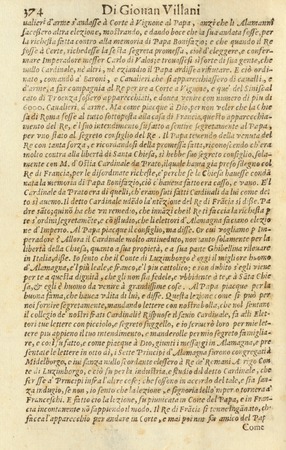 374 Di Giouan Villani
ualieri d'arme s'andasse à Corte à Vignone al Papa, anzi che li Alamanni
facessero altra elezione, mostrando, e dando boce che la sua andata fosse, per
la richesta fatta contro alla memoria di Papa Bonifazio; e che quando il Re
fosse à Corte, richiedesse la sesta segreta promessa, cioè d'eleggere, e confer-
mare Imperadore messer Carlo di Valos; e trouandosi si forte di sua gente, che
nullo Cardinale, nè altri, nè eziandio il Papa ardirebbe rifiutare. E ciò ordi-
nato, comandò a' Baroni, e Caualieri che s'apparecchiassero di caualli, e
d'arme, a far compagnia al Re per ire a Corte a Vignone, e que' del Siniscal
cato di Prouenza fossero apparecchiati, e doueano venire con numero di più di
6000. Caualieri, d'arme. Ma come piacque à Dio, per non voler che la Chie
sa di Roma fosse al tutto sottoposta alla casa di Francia, questo apparecchia-
mento del Re, e 'l suo intendimento fu fatto sentire segretamente al Papa,
per vno stato al segreto consiglio del Re. Il Papa temendo della venuta del
Re con tanta forza, e ricordandosi della promessa fatta, riconoscendo ch'era
molto contro alla libertà di Santa Chiesa, si hebbe suo segreto consiglio, solo-
mente con M. d'Ostia Cardinale da Prato, il quale hauea già preso sdegno col
Re di Francia, per le disordinate richieste, e perchè se la Chiesa hauesse conda
nata la memoria di Papa Bonifazio, ciò c'haueua fatto era casso, e vano. E'l
Cardinale da Prato era di quelli, ch'erano stati fatti Cardinali da lui come det
to in carmo. Il detto Cardinale vdendo la 'ntenzione del Re di Francia disse. Pa
dre santo; quì non ha che vn remedio, che innanzi che il Re ti faccia la richesta p
te s'ordini segretamente, e costudito, che i lettori d'Alamagna facciano elezzio
ne d'Imperio. Al Papa piacque il consiglio, ma disse. Or cui vogliamo per Im-
peradore? Allora il Cardinale molto antiueggente, non tanto solamente per la
libertà della Chiesa, quanto a sua proprietà, e a sua parte Ghibellina rileuare
in Italia, disse. Io sento che il Conte di Luzimborgo è oggi il migliore huomo
d'Alamagna, e il più leale, e franco, e 'l più cattolico; e non dubito s'egli viene
per te a questa dignità, che egli non sia fedele, e vbidiente à te, e à Santa Chie
sa, & egli è huomo da venire à grandissime cose. Al Papa piacque per la
buona fama, che hauea vdita di lui, e disse. Questa lezione come si può per
noi fornire segretamente, mandando lettere con nostra bolla, che nol sentano
il collegio de' nostri frati Cardinali? Rispuose il sauio Cardinale, fa alli Elet-
tori tue lettere con picciolo, e segreto suggello, e io scriuerò loro per mie let-
tere più appieno il tuo intendimento, e manderolle per mio segreto famiglia-
re, e così fu fatto, e come piacque à Dio, giunti i messaggi in Alamagna, e pre-
sentate le lettere in otto dì, i sette Principi d'Alamagna furono congregati à
Midelborgo, e iui sanza nullo discordante elessero à Re de' Romani Arrigo Con
te di Luzimborgo, e ciò fu per la industria, e studio del detto Cardinale, che
scrisse a' Principi infra l'altre cose; che fossono in accordo del tale, e sia san-
za indugio, se non, io sento che la lezione, e signoria dello 'mperio tornerà a'
Franceschi. E fatto ciò la lezione, fu publicata in Francia, e in Corte del Papa, e in Fran
cia incontanente non sapendo il modo. Il Re di Francia si tenne ingannato, che
faceua l'apparecchio per andare in Corte, e mai poi non fu amico del Pap
Come